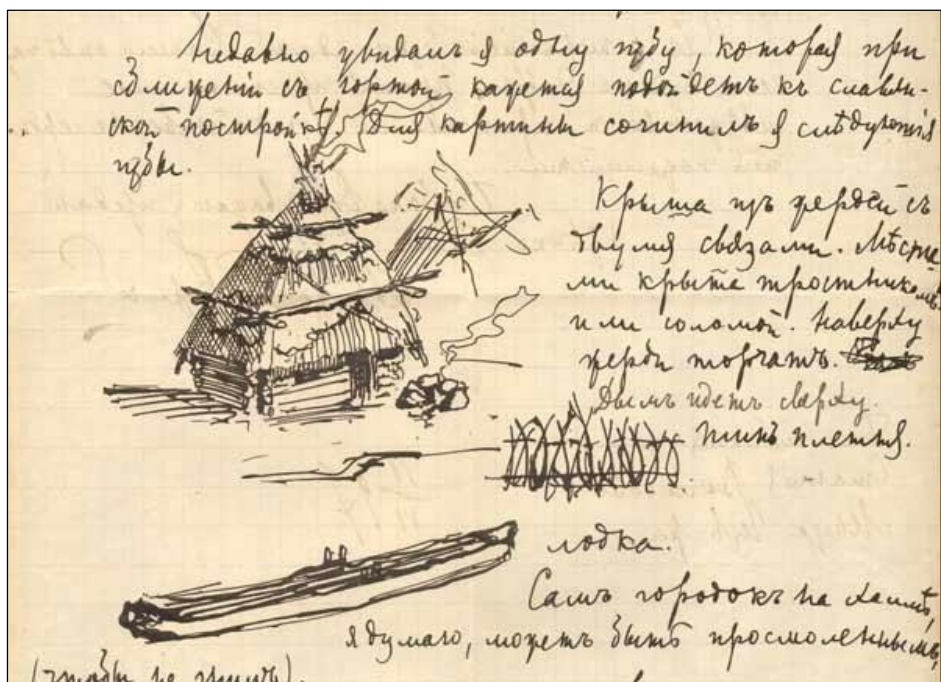 Недавно увидалъ я одну избу, которая при
сближеніи съ юртой кажется подойдетъ къ славян-
ской постройкѣ. Для картины сочинилъ я слѣдующія
избы.
Крыша изъ жердей съ
двумя связами. Мѣста
ми крыта тростникомъ
или соломой. Наверху
жерди торчатъ.
Дымъ идетъ сверху.
Тынъ плетня.
лодка.
Самъ городокъ на холмѣ,
я думаю, можетъ быть просмоленнымъ,
(чтобы не гнилъ).